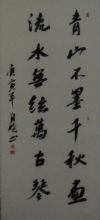 青山不墨千秋画
流水無弦萬古琴
庚寅年